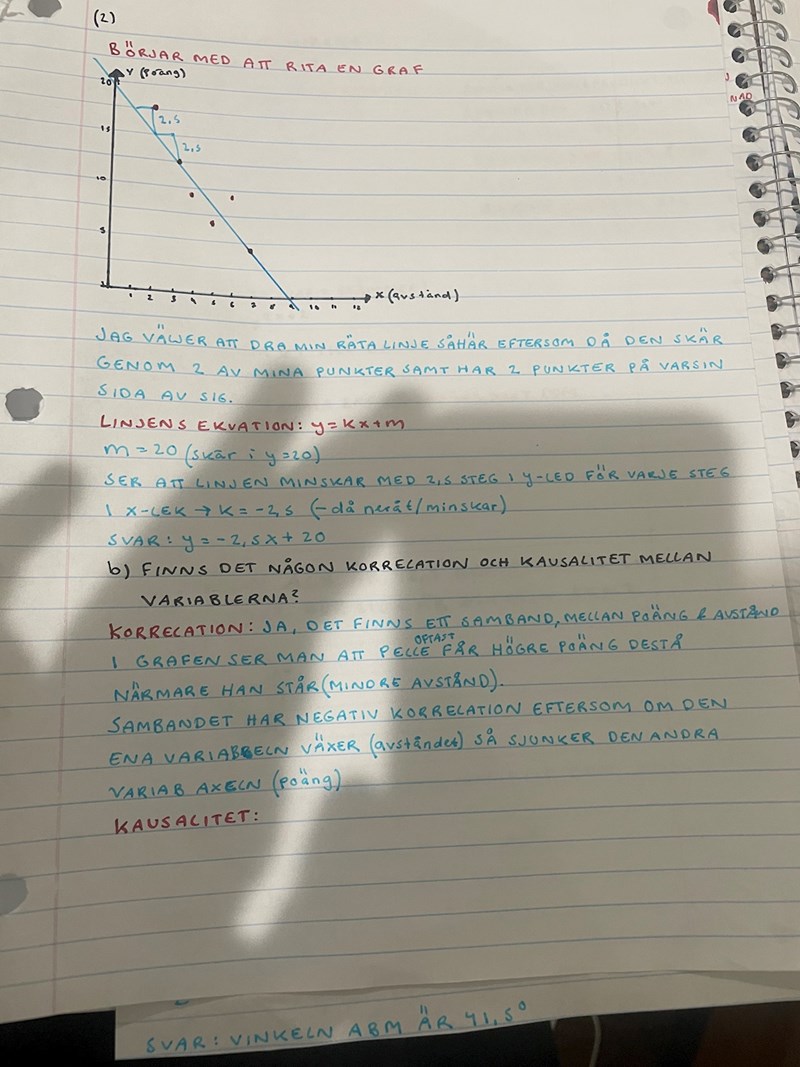 (2)
BÖRJAR MED ATT RITA EN GRAF
Y (poäng)
20
15
10
5
2,5
2,5
1 2 3 4 5 6 7 8 9 10 11 12
X (avstånd)
NAD
JAG VÄLJER ATT DRA MIN RÄTA LINJE SÅHÄR EFTERSOM DÅ DEN SKÄR
GENOM 2 AV MINA PUNKTER SAMT HAR 2 PUNKTER PÅ VARSIN
SIDA AV SIG.
LINJENS EKVATION: y=kx+m
m=20 (skär i y=20)
SER ATT LINJEN MINSKAR MED 2,5 STEG I y-LED FÖR VARJE STEG
I X-LEK → K=-2,5 (- då neråt/minskar)
SVAR: y=-2,5x+20
b) FINNS DET NÅGON KORRELATION OCH KAUSALITET MELLAN
VARIABLERNA?
KORRELATION: JA, DET FINNS ETT SAMBAND, MELLAN POÄNG & AVSTÅND
I GRAFEN SER MAN ATT PELLE OFTAST FÅR HÖGRE POÄNG DESTÅ
NÄRMARE HAN STÅR (MINDRE AVSTÅND).
SAMBANDET HAR NEGATIV KORRELATION EFTERSOM OM DEN
ENA VARIABELN VÄXER (avståndet) SÅ SJUNKER DEN ANDRA
VARIAB AXELN (poäng)
KAUSALITET:
SVAR: VINKELN ABM ÄR 41,5°